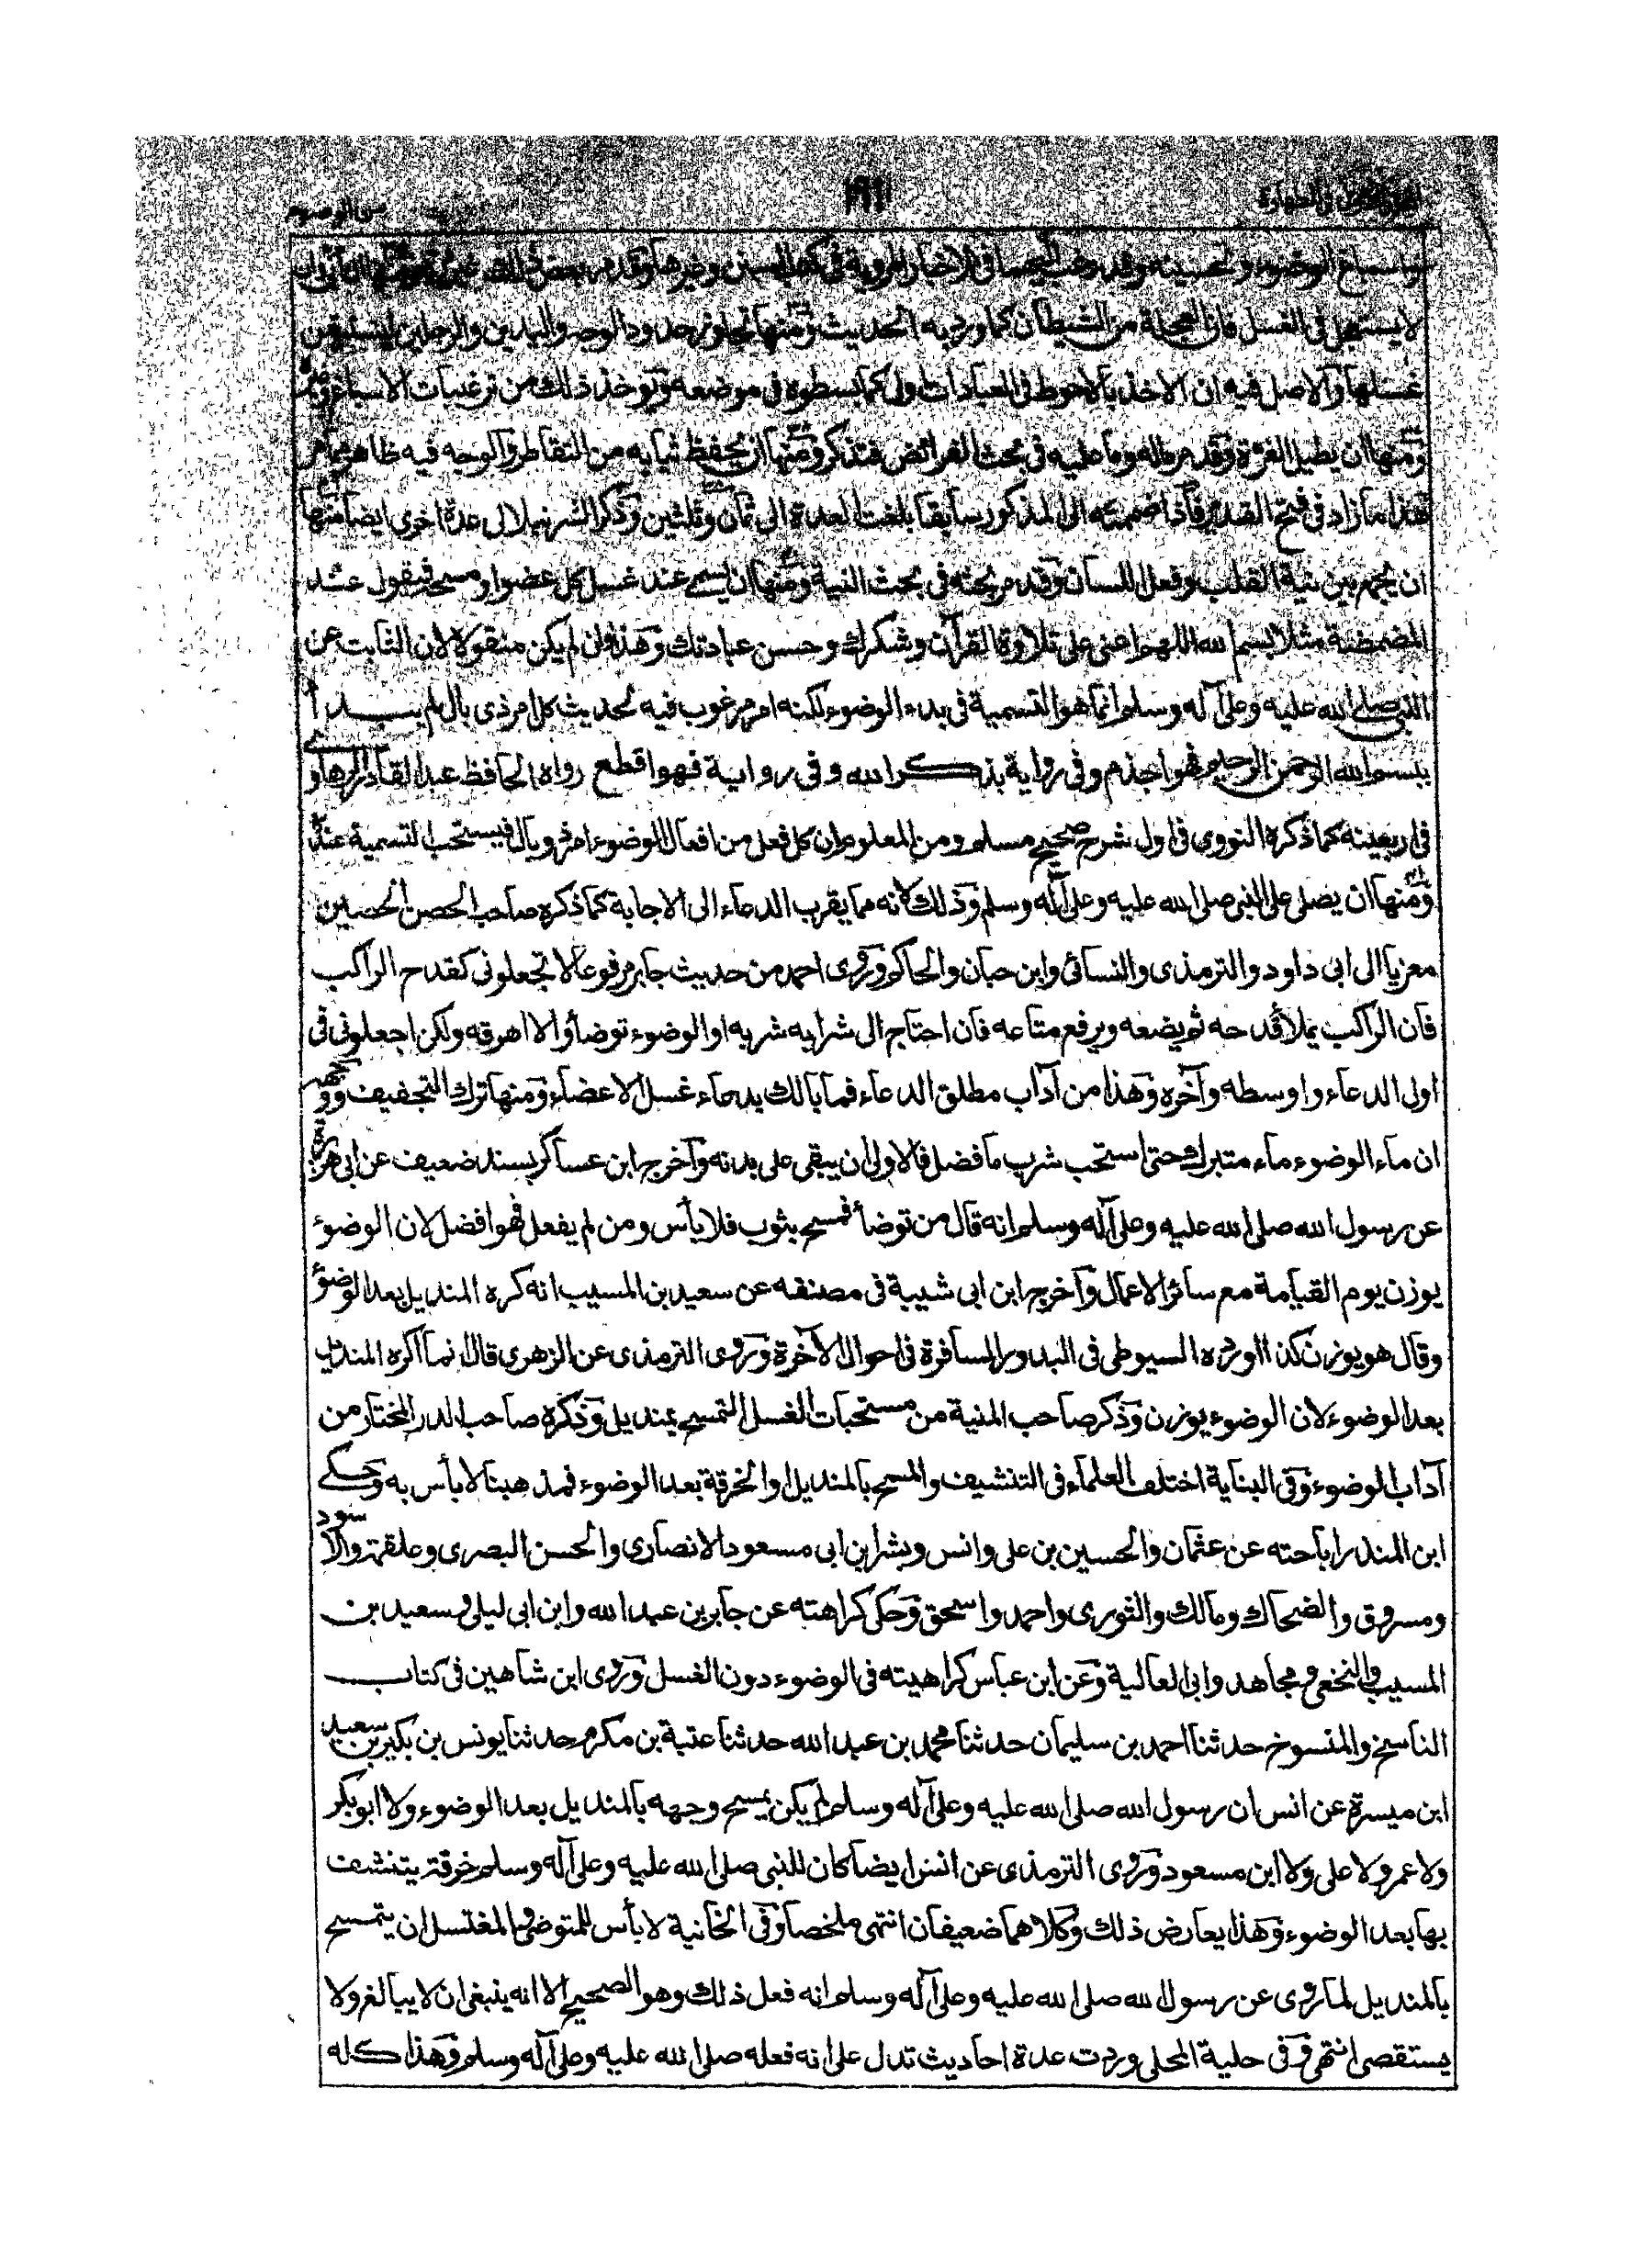 لا يستعجل في الغسل فان العجلة من الشيطان كما ورد به الحديث ومنها تجاوز حدود الوجه واليدين والرجلين ليستيقن
غسلها والاصل فيه ان الاخذ بالاحوط في العبادات اولى كما بسطوه في موضعه ويوخذ ذلك من ترغيبات الاسباغ وقد مر
ومنها ان يطيل الغرة وقد مر ماله وما عليه في بحث الفرائض فتذكر ومنها ان يحفظ ثيابه من التقاطر والوجه فيه ظاهر مما مر
هذا ما زاد في فتح القدير فاذا ضممته الى المذكور سابقا بلغت العدة الى ثمان وثلثين وذكر الشرنبلالى عدة اخرى ايضا منها
ان يجمع بين نية القلب وفعل اللسان وقد مر بحثه في بحث النية ومنها ان يسمي عند غسل كل عضو او مسحه فيقول عند
المضمضة مثلا بسم الله اللهم اعنى على تلاوة القرآن وشكرك وحسن عبادتك وهذا وان لم يكن منقولا لان الثابت عن
النبي صلى الله عليه وعلى آله وسلم انما هو التسمية في بدء الوضوء لكنه امر مرغوب فيه لحديث كل امر ذى بال لم يبدأ
ببسم الله الرحمن الرحيم فهو اجذم وفى رواية بذكر الله وفى رواية فهو اقطع رواه الحافظ عبد القادر الرهاوى
في اربعينه كما ذكره النووى في اول شرح صحيح مسلم ومن المعلوم ان كل فعل من افعال الوضوء امر ذو بال فيستحب التسمية عنده
ومنها ان يصلى على النبى صلى الله عليه وعلى آله وسلم وذلك لانه مما يقرب الدعاء الى الاجابة كما ذكره صاحب الحصن الحصين
معزيا الى ابى داود والترمذى والنسائى وابن حبان والحاكم وروى احمد من حديث جابر مرفوعا لا تجعلونى كقدح الراكب
فان الراكب يملأ قدحه ثم يضعه ويرفع متاعه فان احتاج الى شرابه شربه او الوضوء توضأ والا اهرقه ولكن اجعلونى فى
اول الدعاء واوسطه وآخره وهذا من آداب مطلق الدعاء فما بالك بدعاء غسل الاعضاء ومنها ترك التجفيف ووجهه
ان ماء الوضوء ماء متبرك حتى استحب شرب ما فضل فالاولى ان يبقى على بدنه وآخرج ابن عساكر بسند ضعيف عن ابى هريرة
عن رسول الله صلى الله عليه وعلى آله وسلم انه قال من توضأ فمسح بثوب فلا بأس ومن لم يفعل فهو افضل لان الوضوء
يوزن يوم القيامة مع سائر الاعمال وآخرج ابن ابى شيبة فى مصنفه عن سعيد بن المسيب انه كره المنديل بعد الوضوء
وقال هو يوزن كذا اورده السيوطى فى البدور المسافرة فى احوال الآخرة وروى الترمذى عن الزهرى قال انما اكره المنديل
بعد الوضوء لان الوضوء يوزن وذكر صاحب المنية من مستحبات الغسل التمسح بمنديل وذكره صاحب الدر المختار من
آداب الوضوء وفى البناية اختلف العلماء فى التنشيف والمسح بالمنديل او الخرقة بعد الوضوء فمذهبنا لا بأس به وحكى
ابن المنذر اباحته عن عثمان والحسين بن على وانس وبشر ابن ابى مسعود الانصارى والحسن البصرى وعلقمة والاسود
ومسروق والضحاك ومالك والثورى واحمد واسحق وحكى كراهته عن جابر بن عبد الله وابن ابى ليلى وسعيد بن
المسيب والنخعى ومجاهد وابى العالية وعن ابن عباس كراهيته فى الوضوء دون الغسل وروى ابن شاهين فى كتاب
الناسخ والمنسوخ حدثنا احمد بن سليمان حدثنا محمد بن عبد الله حدثنا عتبة بن مكرم حدثنا يونس بن بكير بن سعيد
ابن ميسرة عن انس ان رسول الله صلى الله عليه وعلى آله وسلم لم يكن يمسح وجهه بالمنديل بعد الوضوء ولا ابو بكر
ولا عمر ولا على ولا ابن مسعود وروى الترمذى عن انس ايضا كان للنبى صلى الله عليه وعلى آله وسلم خرقة يتنشف
بها بعد الوضوء وهذا يعارض ذلك وكلاهما ضعيفان انتهى ملخصا وفى الخانية لا بأس للمتوضى والمغتسل ان يتمسح
بالمنديل لما روى عن رسول الله صلى الله عليه وعلى آله وسلم انه فعل ذلك وهو الصحيح الا انه ينبغى ان لا يبالغ ولا
يستقصى انتهى وفى حلية المحلى وردت عدة احاديث تدل على انه فعله صلى الله عليه وعلى آله وسلم وهذا كله